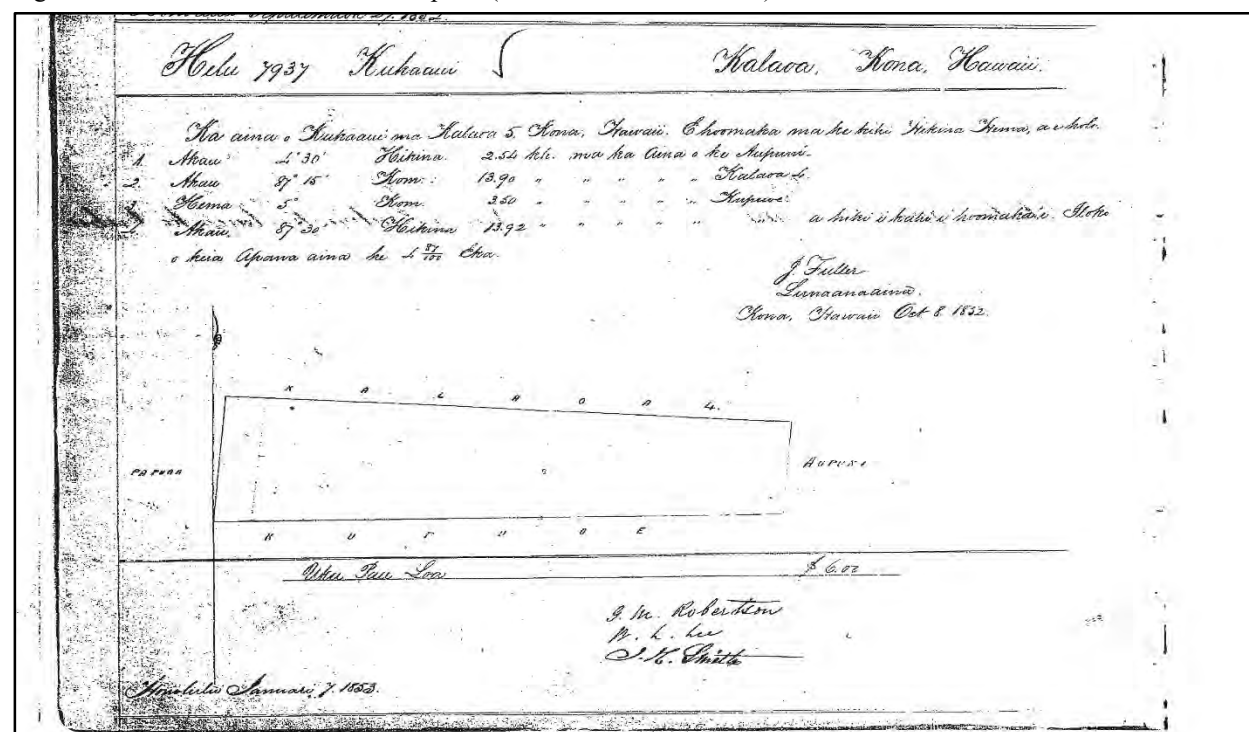 Helu 7937 Kukaaui Kalaoa, Kona, Hawaii.
Ka aina o Kukaaui ma Kalaoa 5, Kona, Hawaii. E hoomaka ma ke kihi Hikina Hema, a e holo
1. Akau 4° 30' Hikina. 2.54 kh. ma ka aina o ke Aupuni.
2. Akau 87° 15' Kom: 13.90 " " " " " Kalaoa 4.
3. Hema 5° Kom. 3.50 " " " " "
4. Akau. 87° 30' Hikina 13.92 " " " " " a hiki i kahi i hoomaka'i. Iloko
o keia Apana aina he 4 87/100 Eka.
J. Fuller
Lunaanaaina.
Kona, Hawaii Oct 8 1852.
KALAOA 4.
PA PUAA
AUPUNI
Uku Pau Loa $ 6.00
G. M. Robertson
W. L. Lee
J. H. Smith
Honolulu Januari 7. 1853.